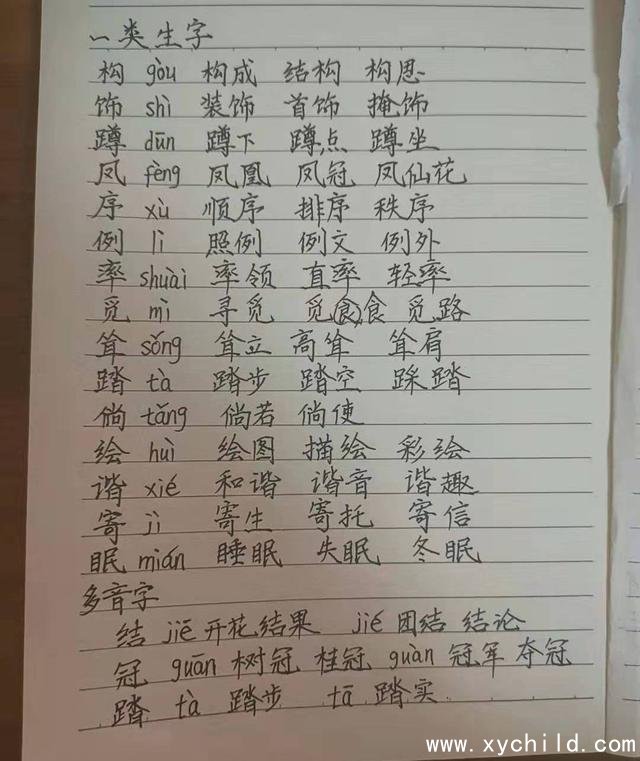 一类生字
构 gòu 构成 结构 构思
饰 shì 装饰 首饰 掩饰
蹲 dūn 蹲下 蹲点 蹲坐
凤 fèng 凤凰 凤冠 凤仙花
序 xù 顺序 排序 秩序
例 lì 照例 例文 例外
率 shuài 率领 直率 轻率
觅 mì 寻觅 觅食食 觅路
耸 sǒng 耸立 高耸 耸肩
踏 tà 踏步 踏空 踩踏
倘 tǎng 倘若 倘使
绘 huì 绘图 描绘 彩绘
谐 xié 和谐 谐音 谐趣
寄 jì 寄生 寄托 寄信
眠 mián 睡眠 失眠 冬眠
多音字
结 jiē 开花结果 jié 团结 结论
冠 guān 树冠 桂冠 guàn 冠军 夺冠
踏 tà 踏步 tā 踏实
www.xychild.com